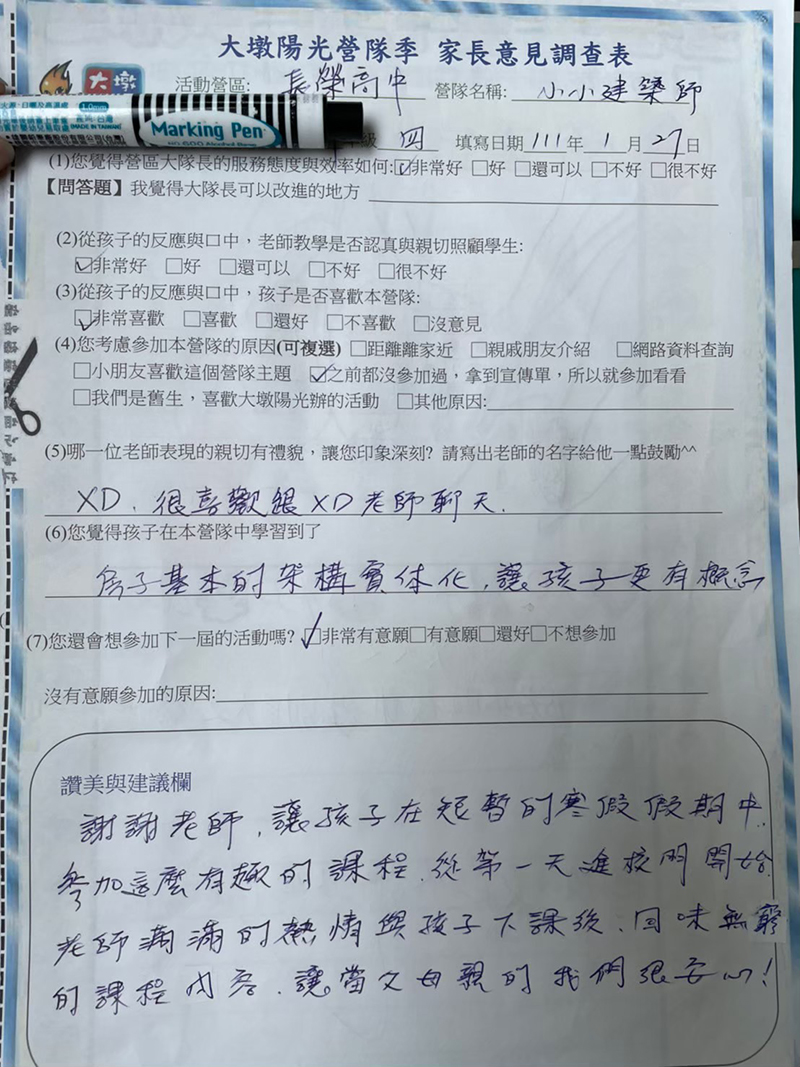 大墩陽光營隊季 家長意見調查表
大墩
活動營區: 長榮高中 營隊名稱: 小小建築師
1.0mm
MADE IN TAIWAN
Marking Pen
級 四 填寫日期 111 年 1 月 27 日
(1)您覺得營區大隊長的服務態度與效率如何:☑非常好 □好 □還可以 □不好 □很不好
【問答題】我覺得大隊長可以改進的地方
(2)從孩子的反應與口中，老師教學是否認真與親切照顧學生:
☑非常好 □好 □還可以 □不好 □很不好
(3)從孩子的反應與口中，孩子是否喜歡本營隊:
☑非常喜歡 □喜歡 □還好 □不喜歡 □沒意見
(4)您考慮參加本營隊的原因(可複選) □距離離家近 □親戚朋友介紹 □網路資料查詢
□小朋友喜歡這個營隊主題 ☑之前都沒參加過，拿到宣傳單，所以就參加看看
□我們是舊生，喜歡大墩陽光辦的活動 □其他原因:
(5)哪一位老師表現的親切有禮貌，讓您印象深刻? 請寫出老師的名字給他一點鼓勵^^
XD. 很喜歡跟XD老師聊天.
(6)您覺得孩子在本營隊中學習到了
房子基本的架構實体化, 讓孩子更有概念
(7)您還會想參加下一屆的活動嗎? ☑非常有意願□有意願□還好□不想參加
沒有意願參加的原因:
讚美與建議欄
謝謝老師, 讓孩子在短暫的寒假假期中.
參加這麼有趣的課程. 從第一天進校門開始.
老師滿滿的熱情與孩子下課後、回味無窮
的課程內容. 讓當父母親的我們很安心!